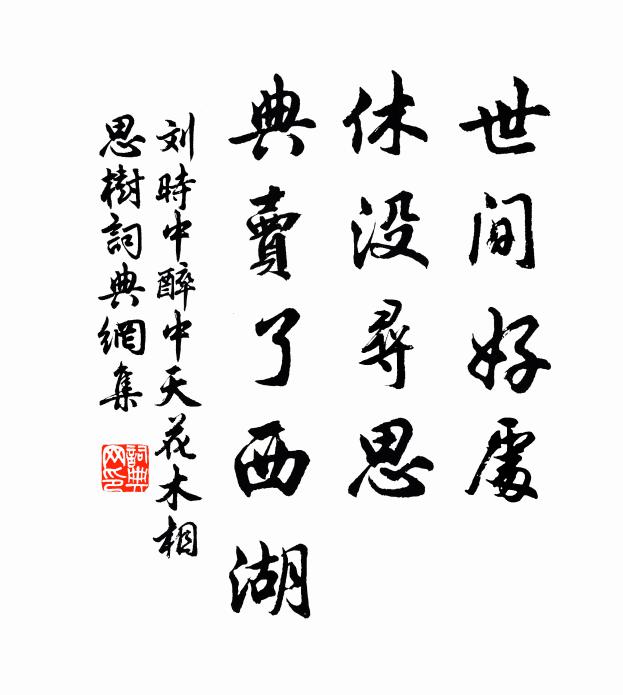 世间好處
休没尋思
典賣了西湖
刘時中醉中天花木相
思樹詞典網集
詞典
网印